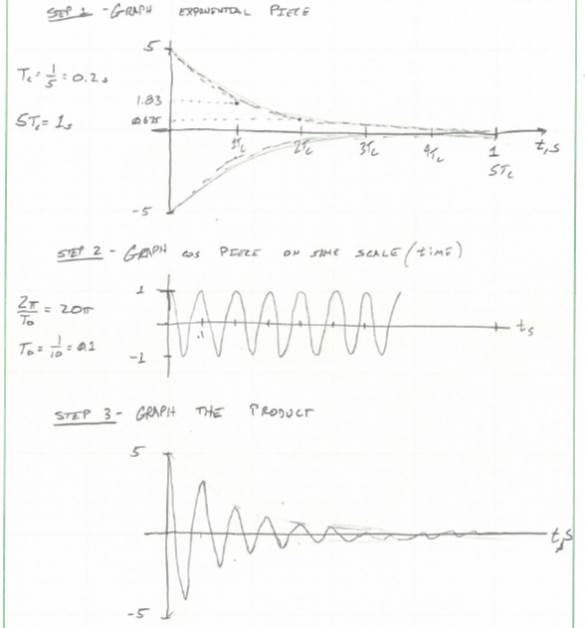 STEP 1 - GRAPH EXPONENTIAL PIECE
5
Tc = 1/5 = 0.2s
1.83
0.675
5Tc = 1s
1Tc 2Tc 3Tc 4Tc 1 t,s
5Tc
-5
STEP 2 - GRAPH cos PIECE ON SAME SCALE (time)
1
2π/T0 = 20π
ts
.1
T0 = 1/10 = 0.1
-1
STEP 3 - GRAPH THE PRODUCT
5
t,s
-5